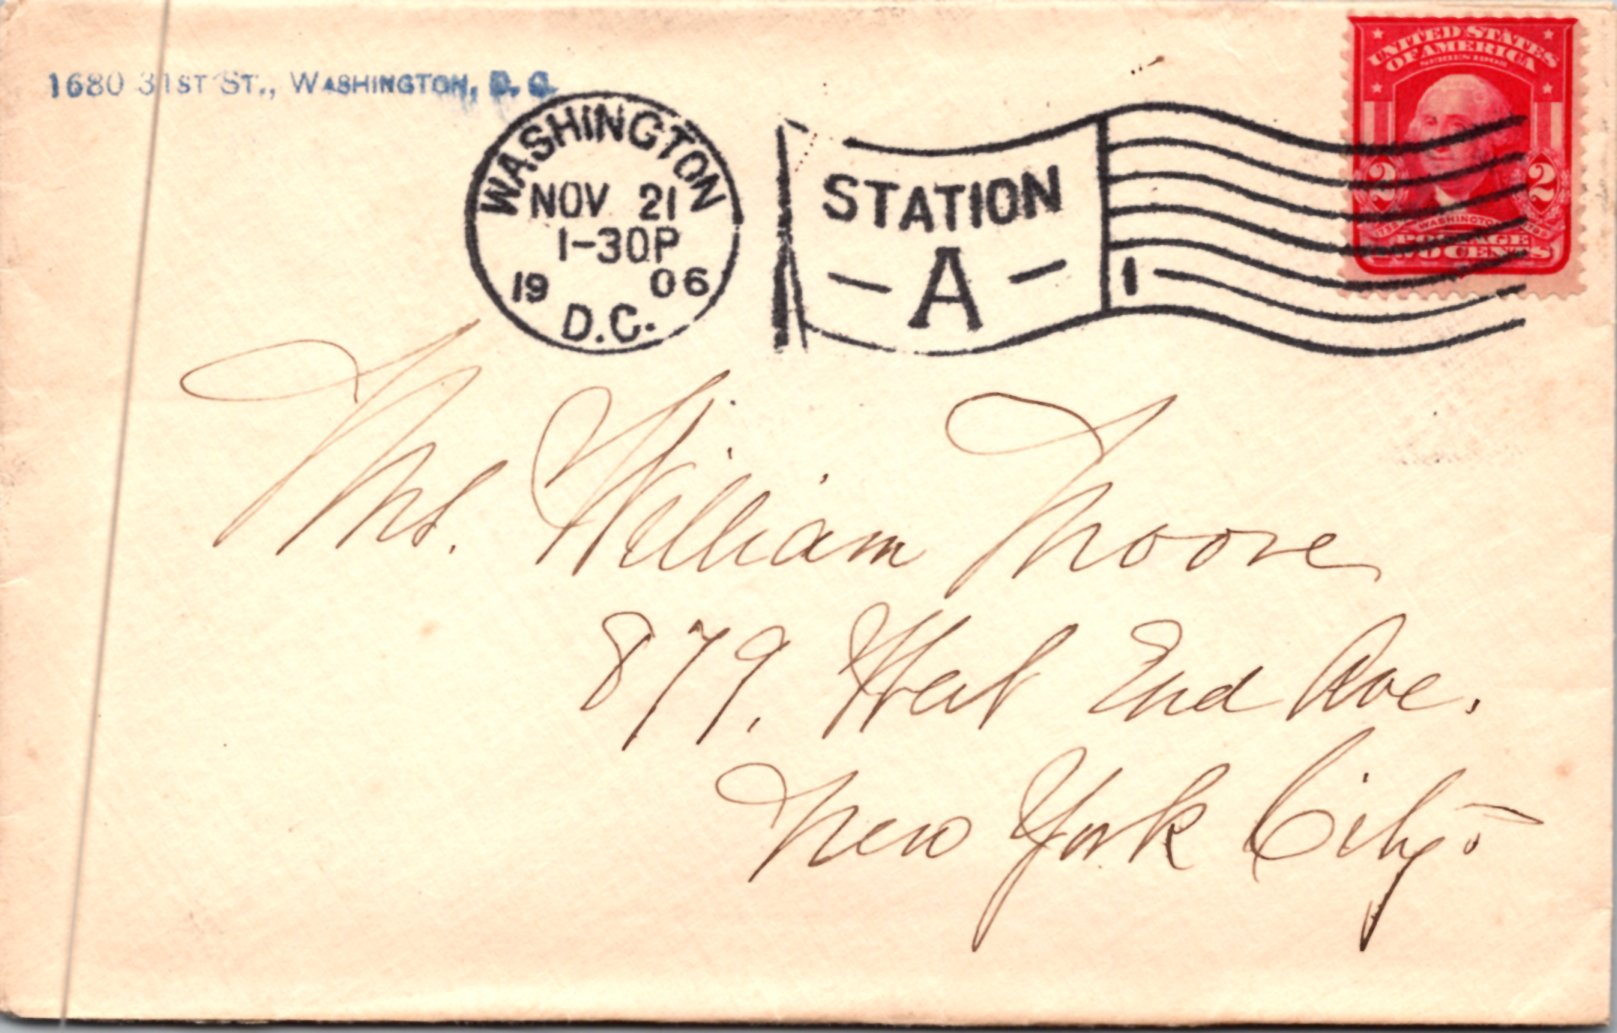 1680 31ST ST., WASHINGTON, D. C.
WASHINGTON
NOV 21
1-30P
19 06
D.C.
STATION
A
1
UNITED STATES
OF AMERICA
SERIES 1902
2 2
WASHINGTON
POSTAGE
TWO CENTS
Mrs. William Moore
879, West End Ave.
New York City.